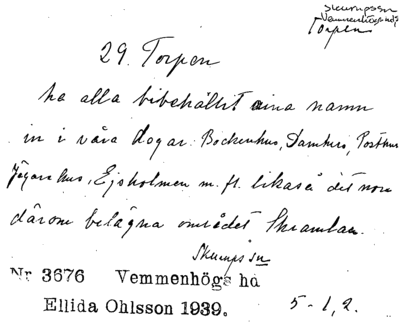 Skurupssn
Vemmenhögshd
Torpen
29. Torpen
ha alla bibehållit sina namn
in i våra dagar: Bockenhus, Damhus, Posthus
Jägarehus, Ejsholmen m. fl. likaså det norr
därom belägna området Skramlan.
Skurups sn
Nr 3676 Vemmenhögs hd
Ellida Ohlsson 1939. 5-1,2.